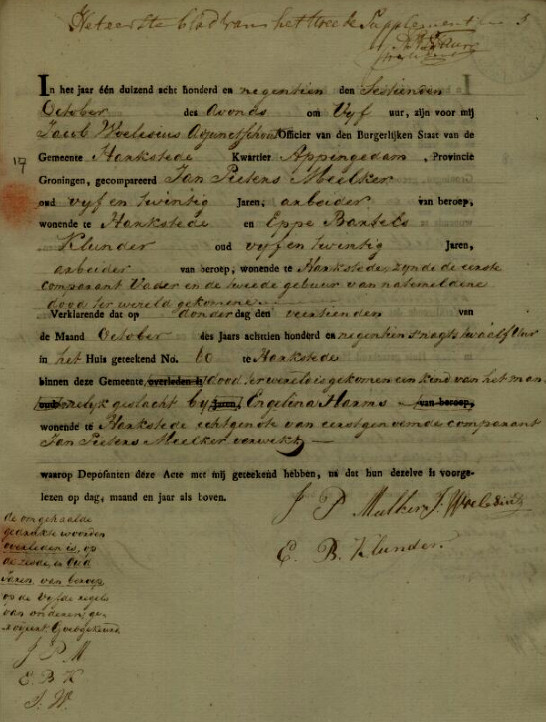 Het eerste blad van het tweede Supplement
In het jaar één duizend acht honderd en negentien den Sestienden
October des avonds om Vyf uur, zijn voor mij
Jacob Woelesius Adjunctschout Officier van den Burgerlijken Staat van de
Gemeente Harkstede Kwartier Appingedam, Provincie
19
Groningen, gecompareerd Jan Pieters Meelker
oud vyf en twintig Jaren, arbeider van beroep,
wonende te Harkstede en Eppe Bartels
Klunder oud vyf en twintig Jaren,
arbeider van beroep, wonende te Harkstede, zynde de eerste
comparant Vader en de tweede gebuur van natemeldene
dood ter wereld gekomene
Verklarende dat op donderdag den veertienden van
de Maand October des Jaars achttien honderd en negentien s'nagts twaalf Uur
in het Huis geteekend No. 60 te Harkstede
binnen deze Gemeente, overleden is dood ter wereld is gekomen een kind van het man
oud nelyk geslacht by Jaren Engelina Harms van beroep,
wonende te Harkstede echtgenote van eerstgenoemde comparant
Jan Pieters Meelker verwekt
waarop Deposanten deze Acte met mij geteekend hebben, na dat hun dezelve is voorge-
lezen op dag, maand en jaar als boven.
J P Mulker J. Woelesius
E. B. Klunder
de omgehaalde
gedrukte woorden
overleden is, op
de zesde, en Oud
Jaren van beroep
op de vyfde regels
van onderen, ge-
royeert. Goedgekeurd
J P M
E. B. K
J. W.